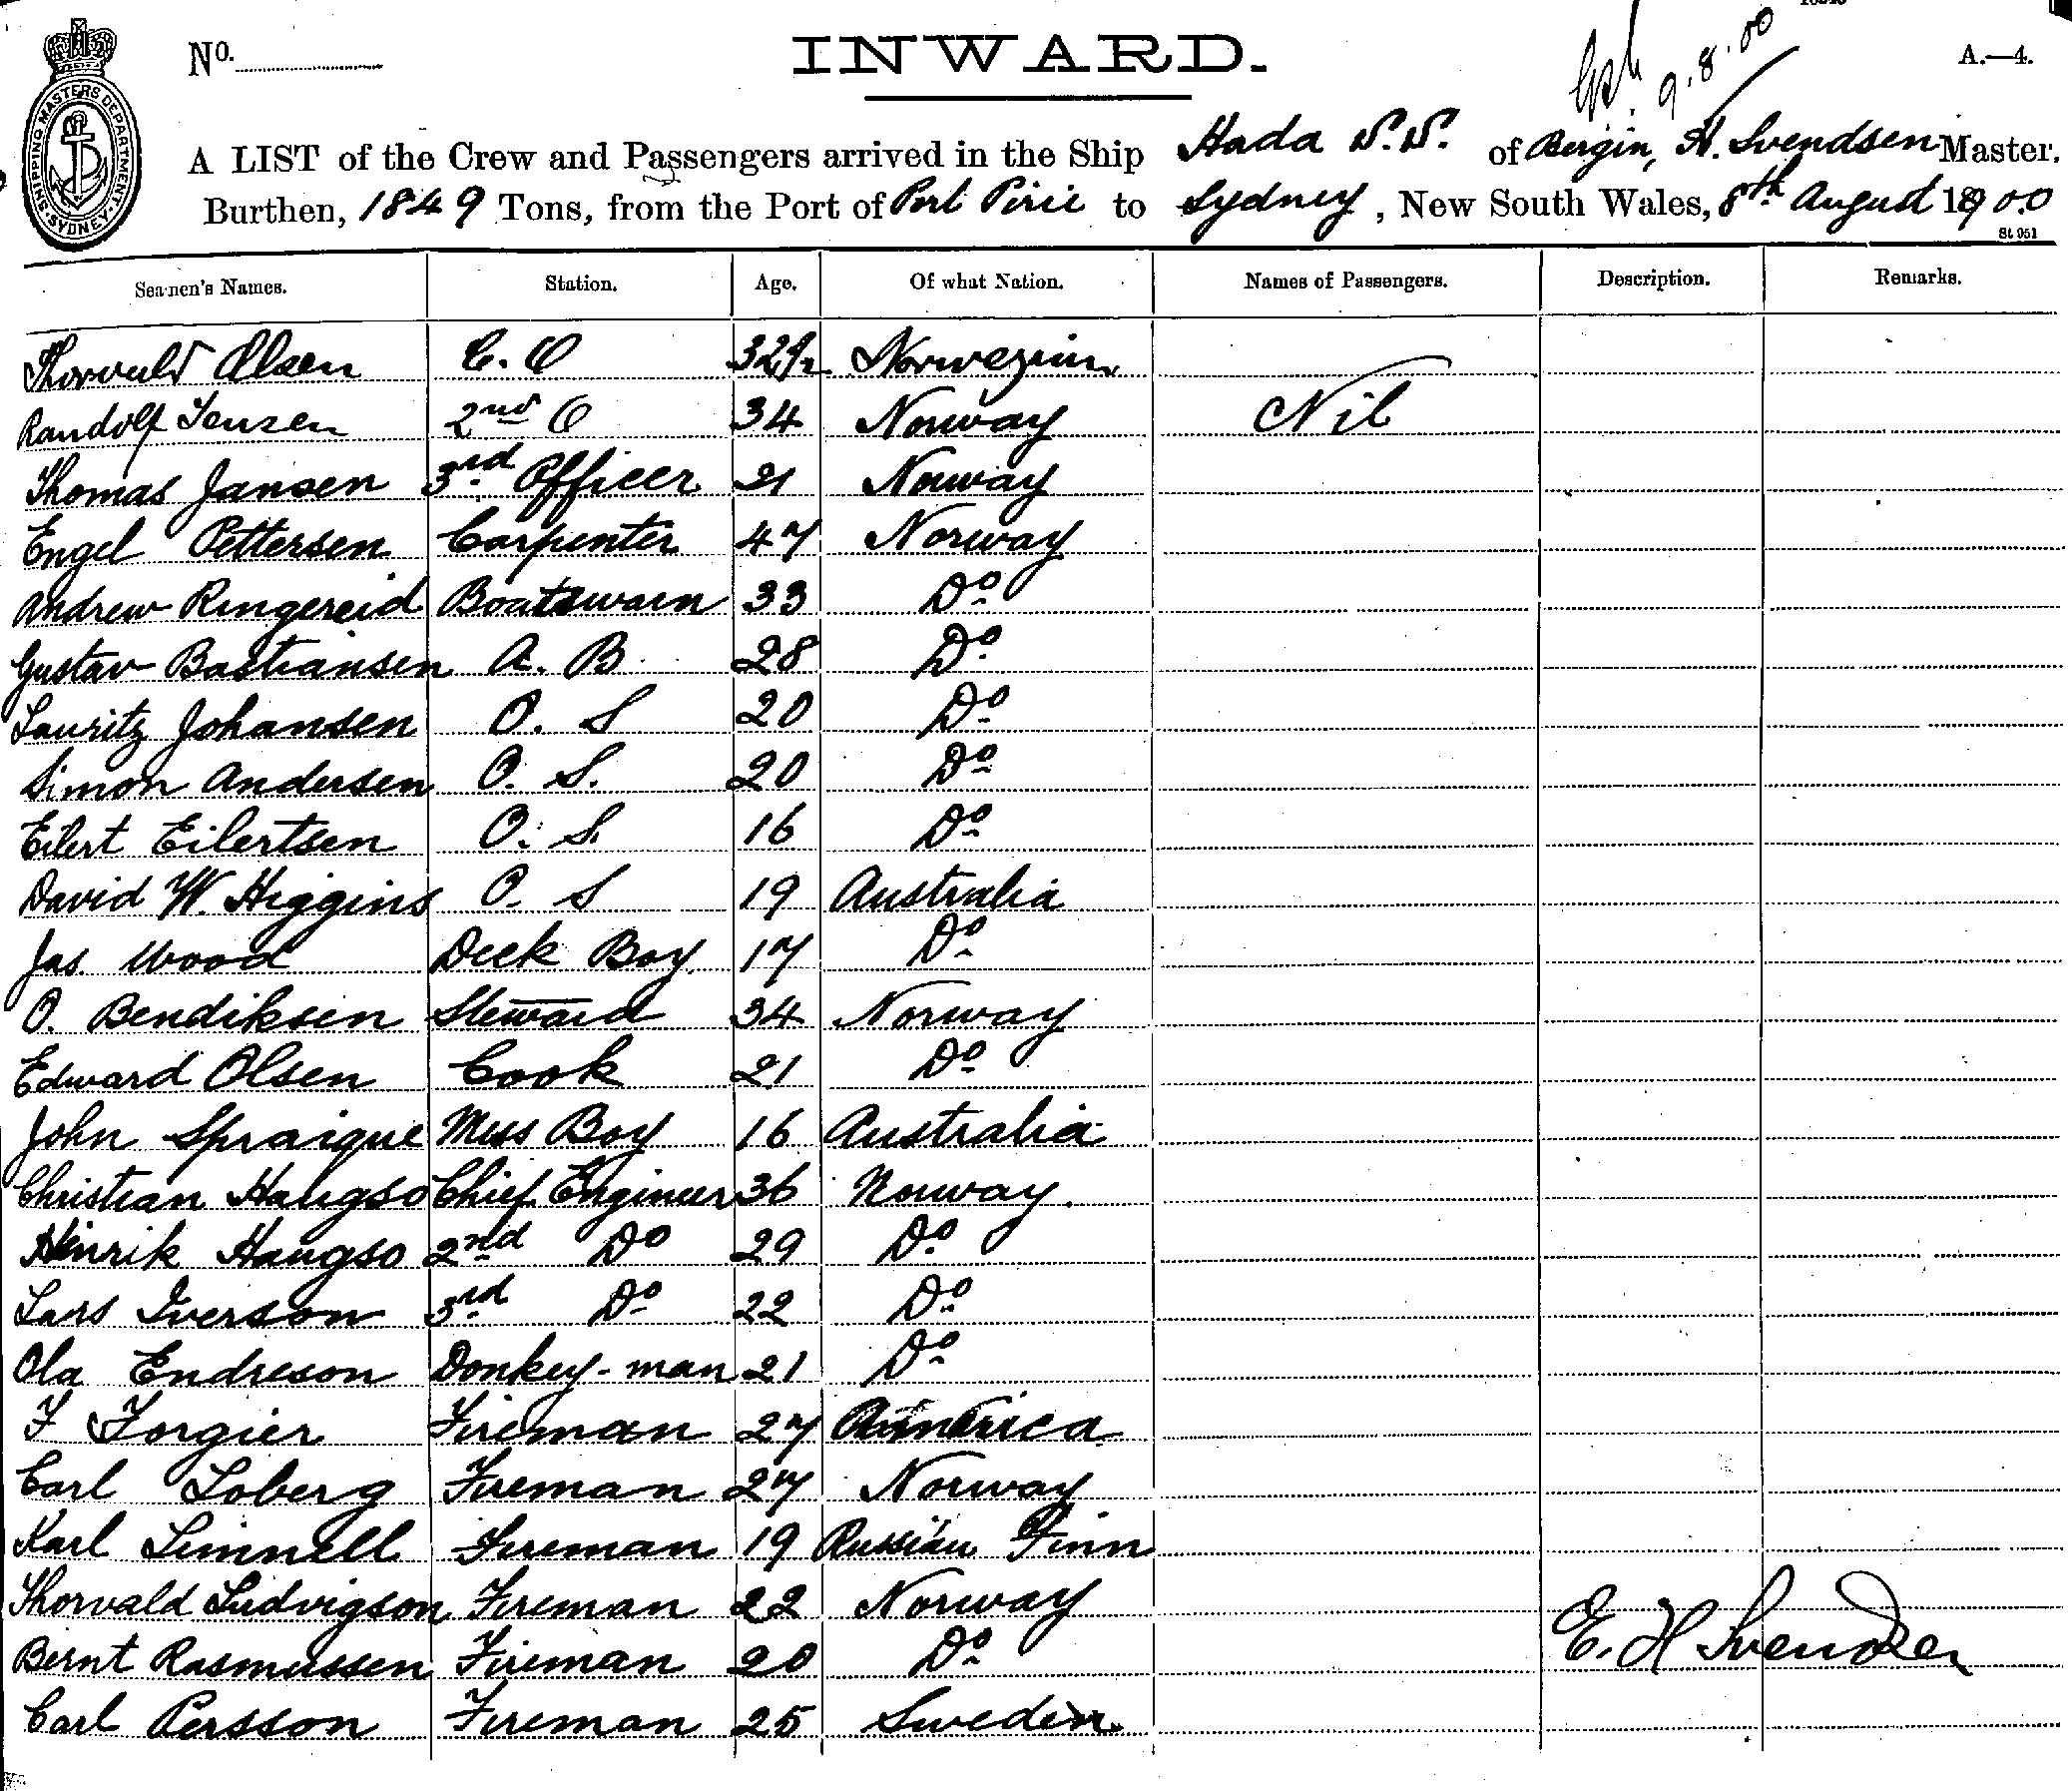 INWARD.
No.
9.8.00
A.—4.
SHIPPING MASTERS DEPARTMENT SYDNEY
A LIST of the Crew and Passengers arrived in the Ship Hada S.S. of Bergin, H. Svendsen Master.
Burthen, 1849 Tons, from the Port of Port Pirie to Sydney, New South Wales, 8th August 1900
St 951
Seamen's Names. Station. Age. Of what Nation. Names of Passengers. Description. Remarks.
Thorvald Olsen C. O 32½ Norwegian
Randolf Jensen 2nd O 34 Norway Nil
Thomas Jansen 3rd Officer 21 Norway
Engel Pettersen Carpenter 47 Norway
Andrew Ringereid Boatswain 33 Do
Gustav Bastiansen A. B 28 Do
Lauritz Johansen O. S 20 Do
Simon Andersen O. S. 20 Do
Eilert Eilertsen O. S. 16 Do
David W. Higgins O. S 19 Australia
Jas Wood Deck Boy 17 Do
O. Bendiksen Steward 34 Norway
Edward Olsen Cook 21 Do
John Spraique Mess Boy 16 Australia
Christian Haugso Chief Engineer 36 Norway.
Henrik Haugso 2nd Do 29 Do
Lars Iverson 3rd Do 22 Do
Ola Endreson Donkey-man 21 Do
F Forgier Fireman 27 America
Carl Loberg Fireman 27 Norway
Karl Linnell Fireman 19 Russian Finn
Thorvald Ludvigson Fireman 22 Norway
Bernt Rasmussen Fireman 20 Do E. H Svendsen
Carl Persson Fireman 25 Sweden